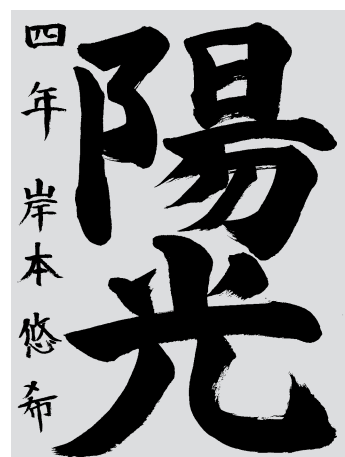 陽光
四年 岸本悠希